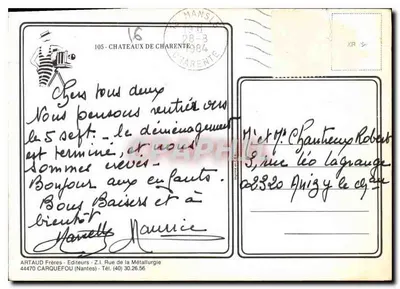 16
MANSLE
28-8
1984
CHARENTE
105 - CHATEAUX DE CHARENTE
Chers tous deux
Nous pensons rentrer vers
le 5 sept. - le déménagement
est terminé, et nous
sommes crevés -
Bonjour aux enfants.
Bons Baisers et à
bientôt
Marcelle Maurice
Mr et Me Chantreux Robert
9, rue léo lagrange
02320 Anizy le Chau
ARTAUD Frères - Editeurs - Z.I. Rue de la Métallurgie
44470 CARQUEFOU (Nantes) - Tél. (40) 30.26.56